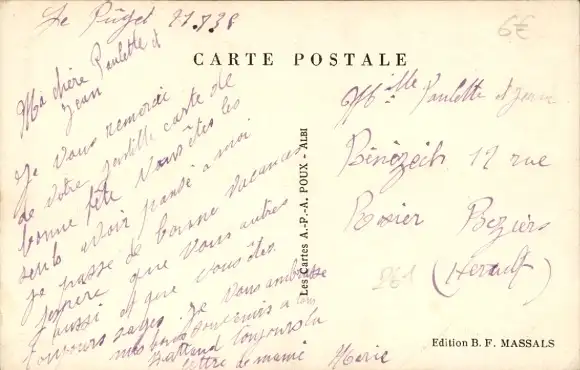 Le Puget 21.8.38
6€
CARTE POSTALE
Ma chère Paulette et
Jean
Je vous remercie
de votre gentille carte de
bonne fête Vous êtes les
seuls avoir pansé a moi
je passe de bonne vacances
j'espère que vous autres
aussi et que vous êtes
toujours sages. je vous embrasse
toujours la
lettre de mamé Marie
Les Cartes A.-P.-A. POUX - ALBI
Melle Paulette et Jean
Bénézech 12 rue
Rosier Beziers
(Herault)
261
Edition B. F. MASSALS